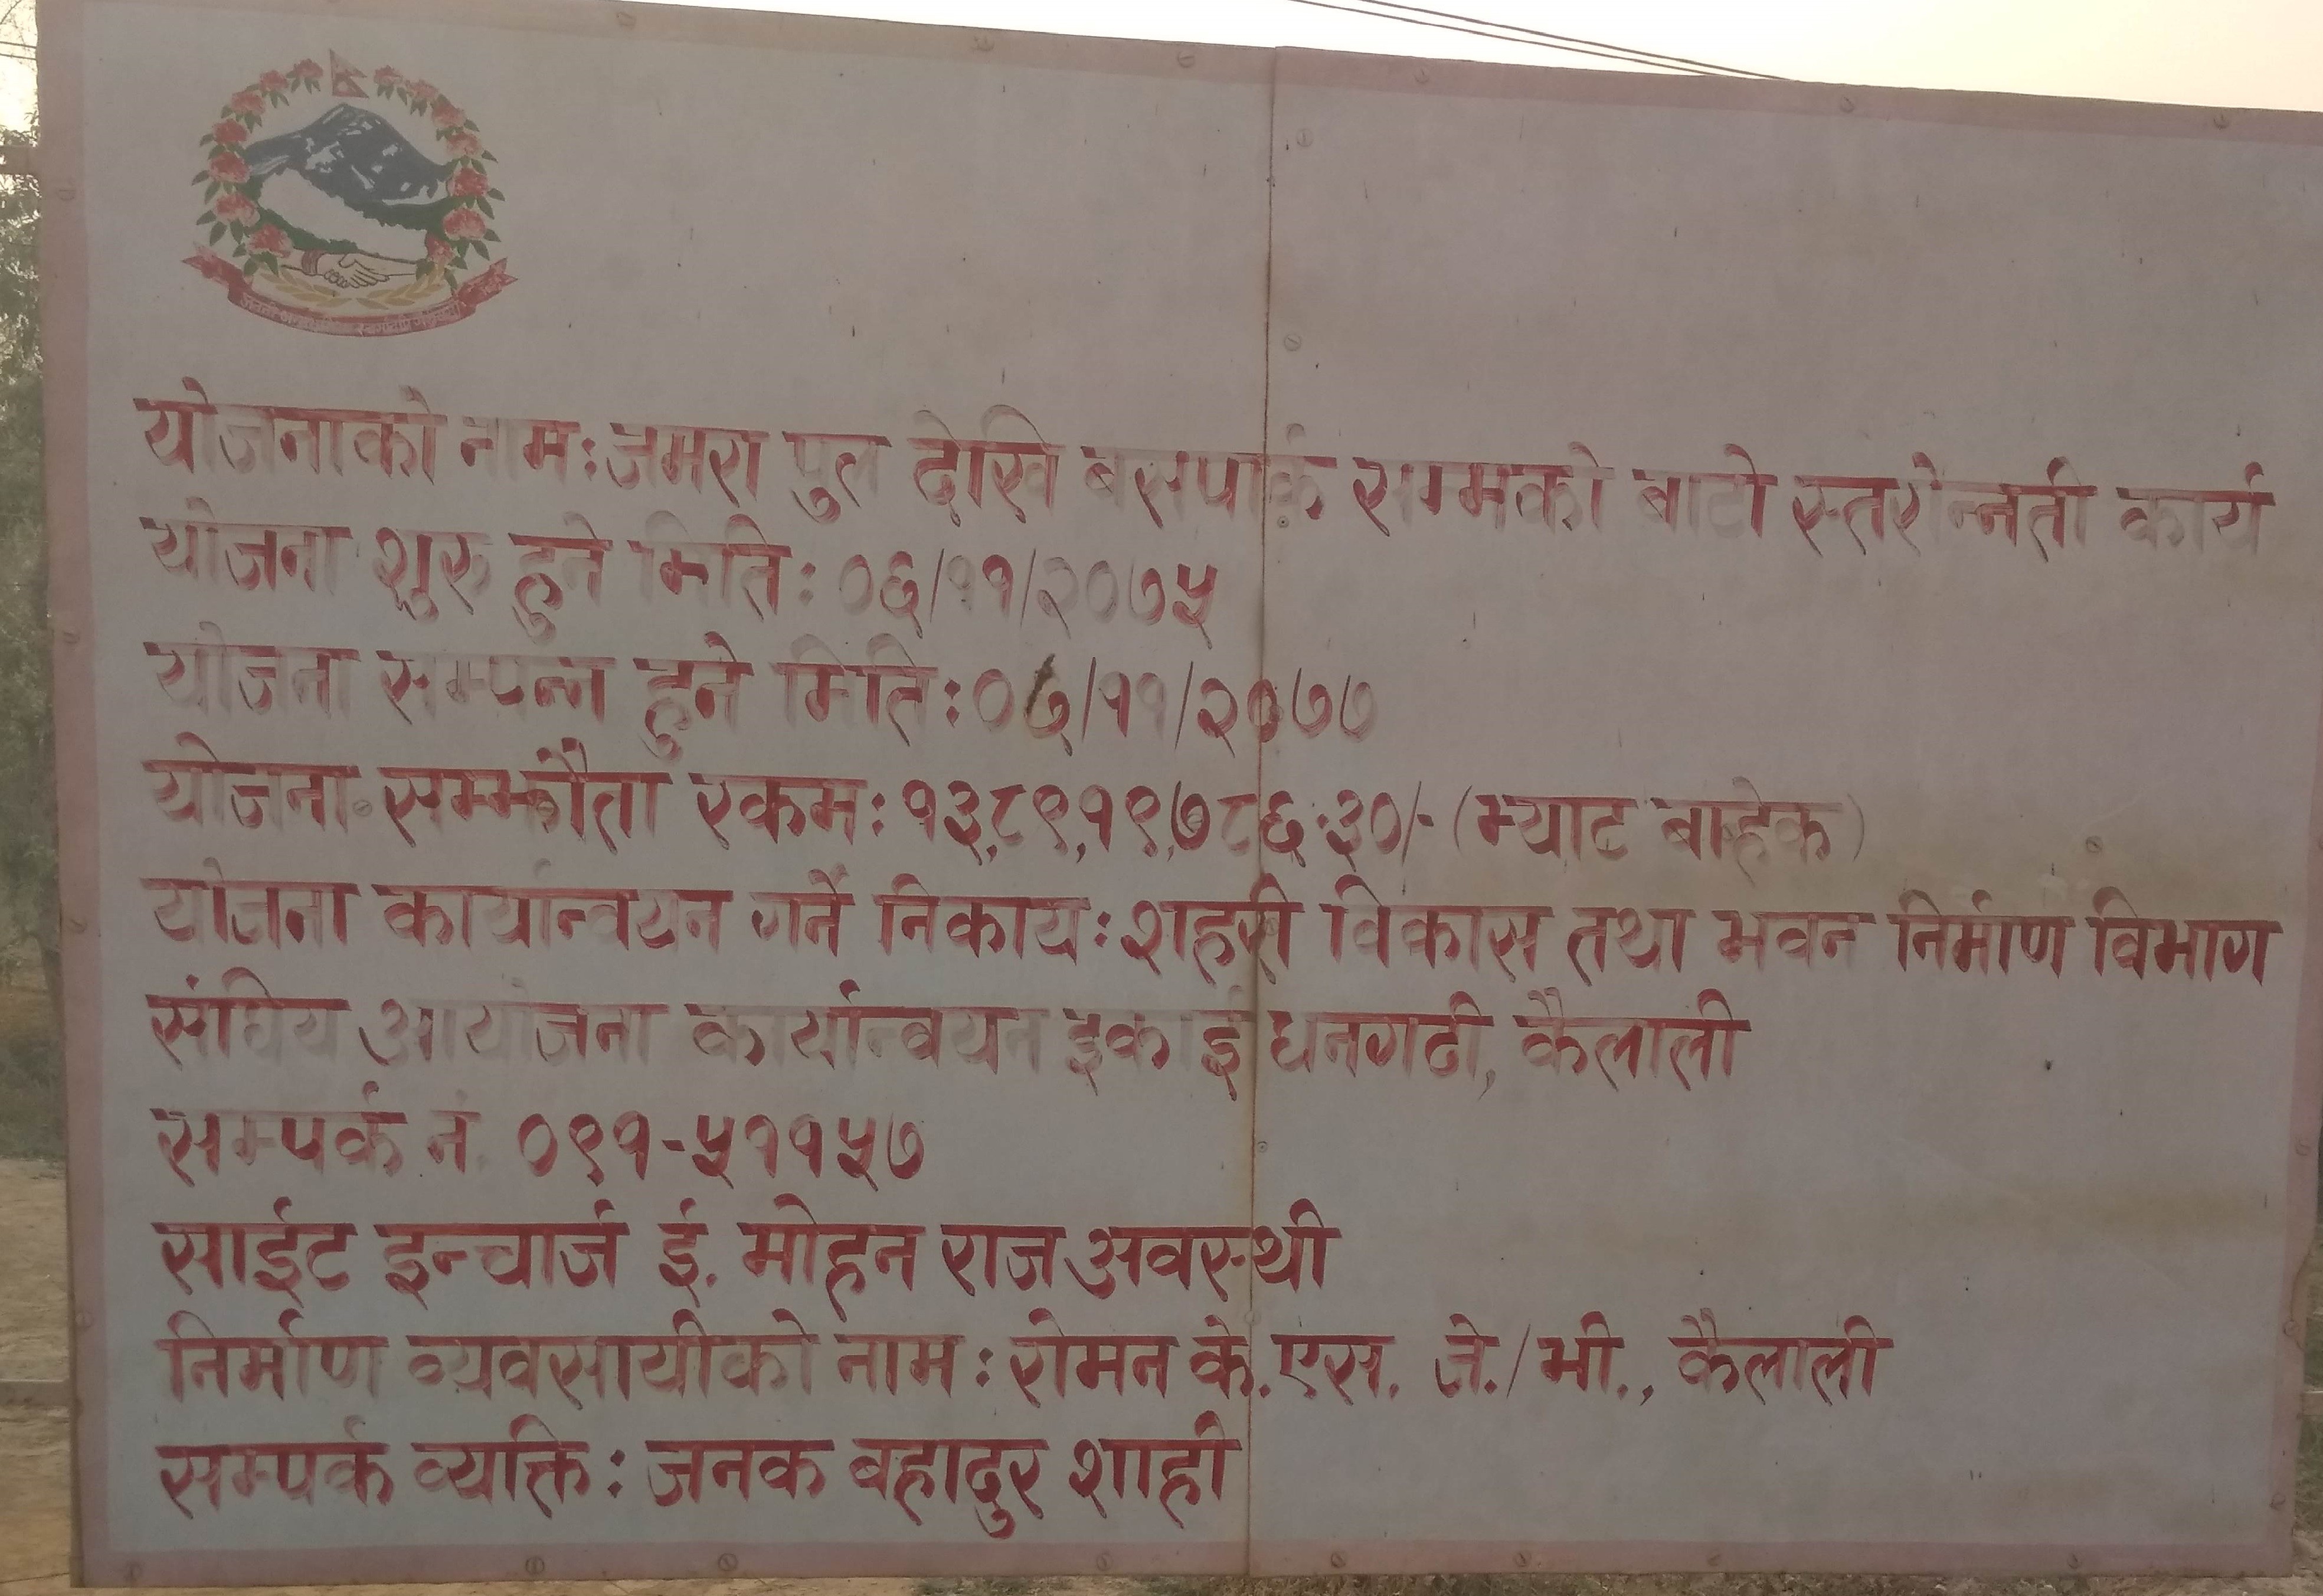 योजनाको नामः जमरा पुल देखि बसपार्क सम्मको बाटो स्तरोन्नती कार्य
योजना शुरु हुने मितिः ०६/११/२०७५
योजना सम्पन्न हुने मितिः ०७/११/२०७७
योजना सम्झौता रकमः १३,८९,१९,७८६.३०/- (भ्याट बाहेक)
योजना कार्यान्वयन गर्ने निकायः शहरी विकास तथा भवन निर्माण विभाग
संघिय आयोजना कार्यान्वयन इकाई धनगढी, कैलाली
सम्पर्क नं. ०९१-५११५७
साईट इन्चार्ज ई. मोहन राज अवस्थी
निर्माण व्यवसायीको नामः रोमन के.एस. जे./भी., कैलाली
सम्पर्क व्यक्तिः जनक बहादुर शाही